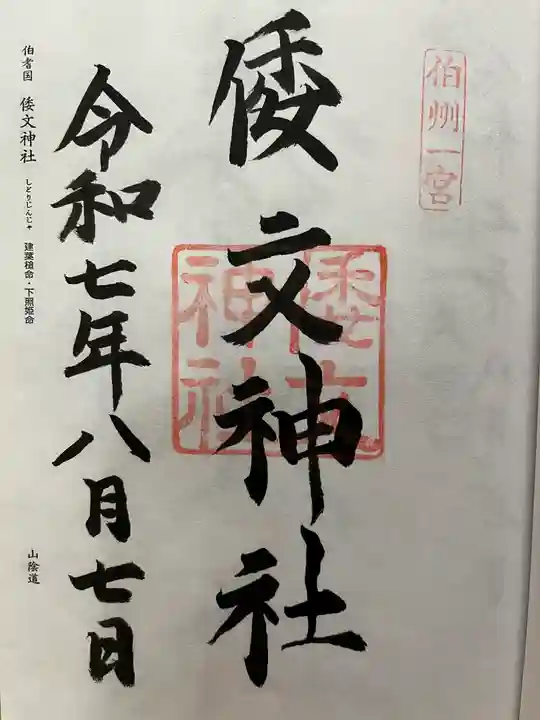 伯州一宮
倭文神社
倭文神社
令和七年八月七日
伯耆国 倭文神社 しとりじんじゃ 建葉槌命・下照姫命
山陰道